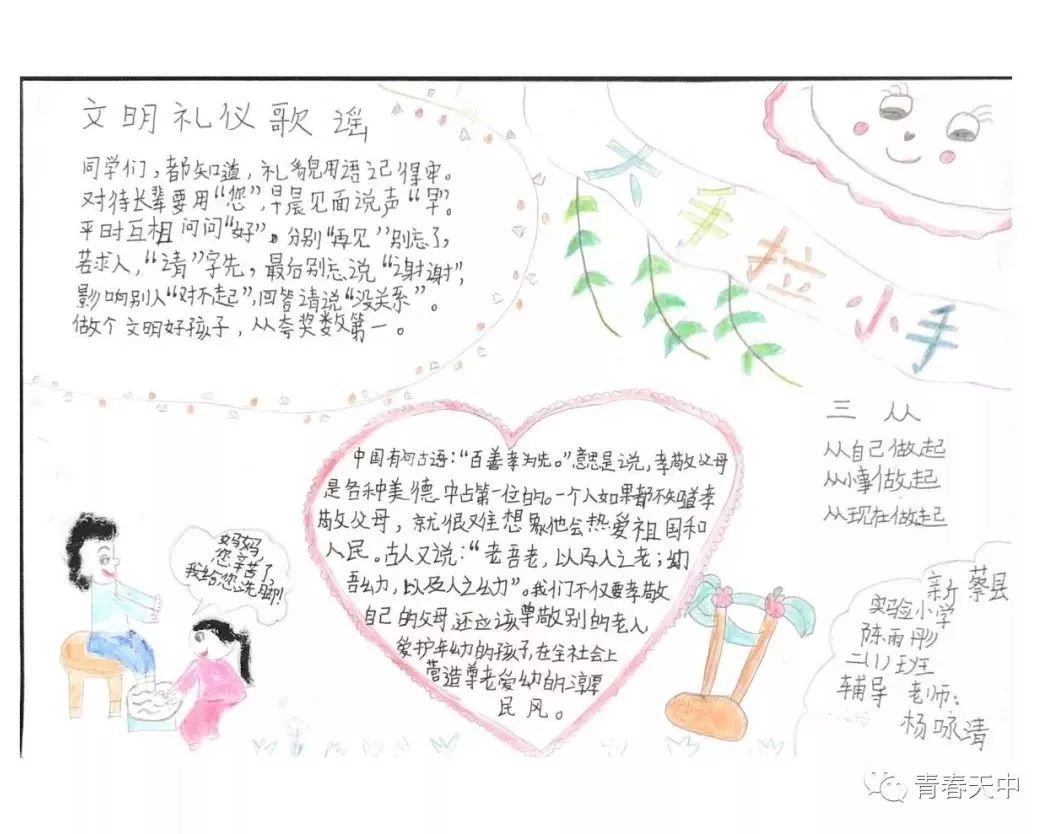 文明礼仪歌谣
同学们，都知道，礼貌用语记得牢。
对待长辈要用“您”，早晨见面说声“早”。
平时互相问问“好”。分别“再见”别忘了，
若求人，“请”字先，最后别忘说“谢谢”，
影响别人“对不起”，回答请说“没关系”。
做个文明好孩子，从夸奖数第一。
大手拉小手
三从
从自己做起
从小事做起
从现在做起
中国有句古语：“百善孝为先。”意思是说，孝敬父母
是各种美德中占第一位的。一个人如果都不知道孝
敬父母，就很难想象他会热爱祖国和
人民。古人又说：“老吾老，以及人之老；幼
吾幼，以及人之幼”。我们不仅要孝敬
自己的父母，还应该尊敬别的老人
爱护年幼的孩子，在全社会上
营造尊老爱幼的淳厚
民风。
妈妈
您辛苦了，
我给您洗脚！
新蔡县
实验小学
陈雨彤
二(1)班
辅导老师：
杨咏清
青春天中